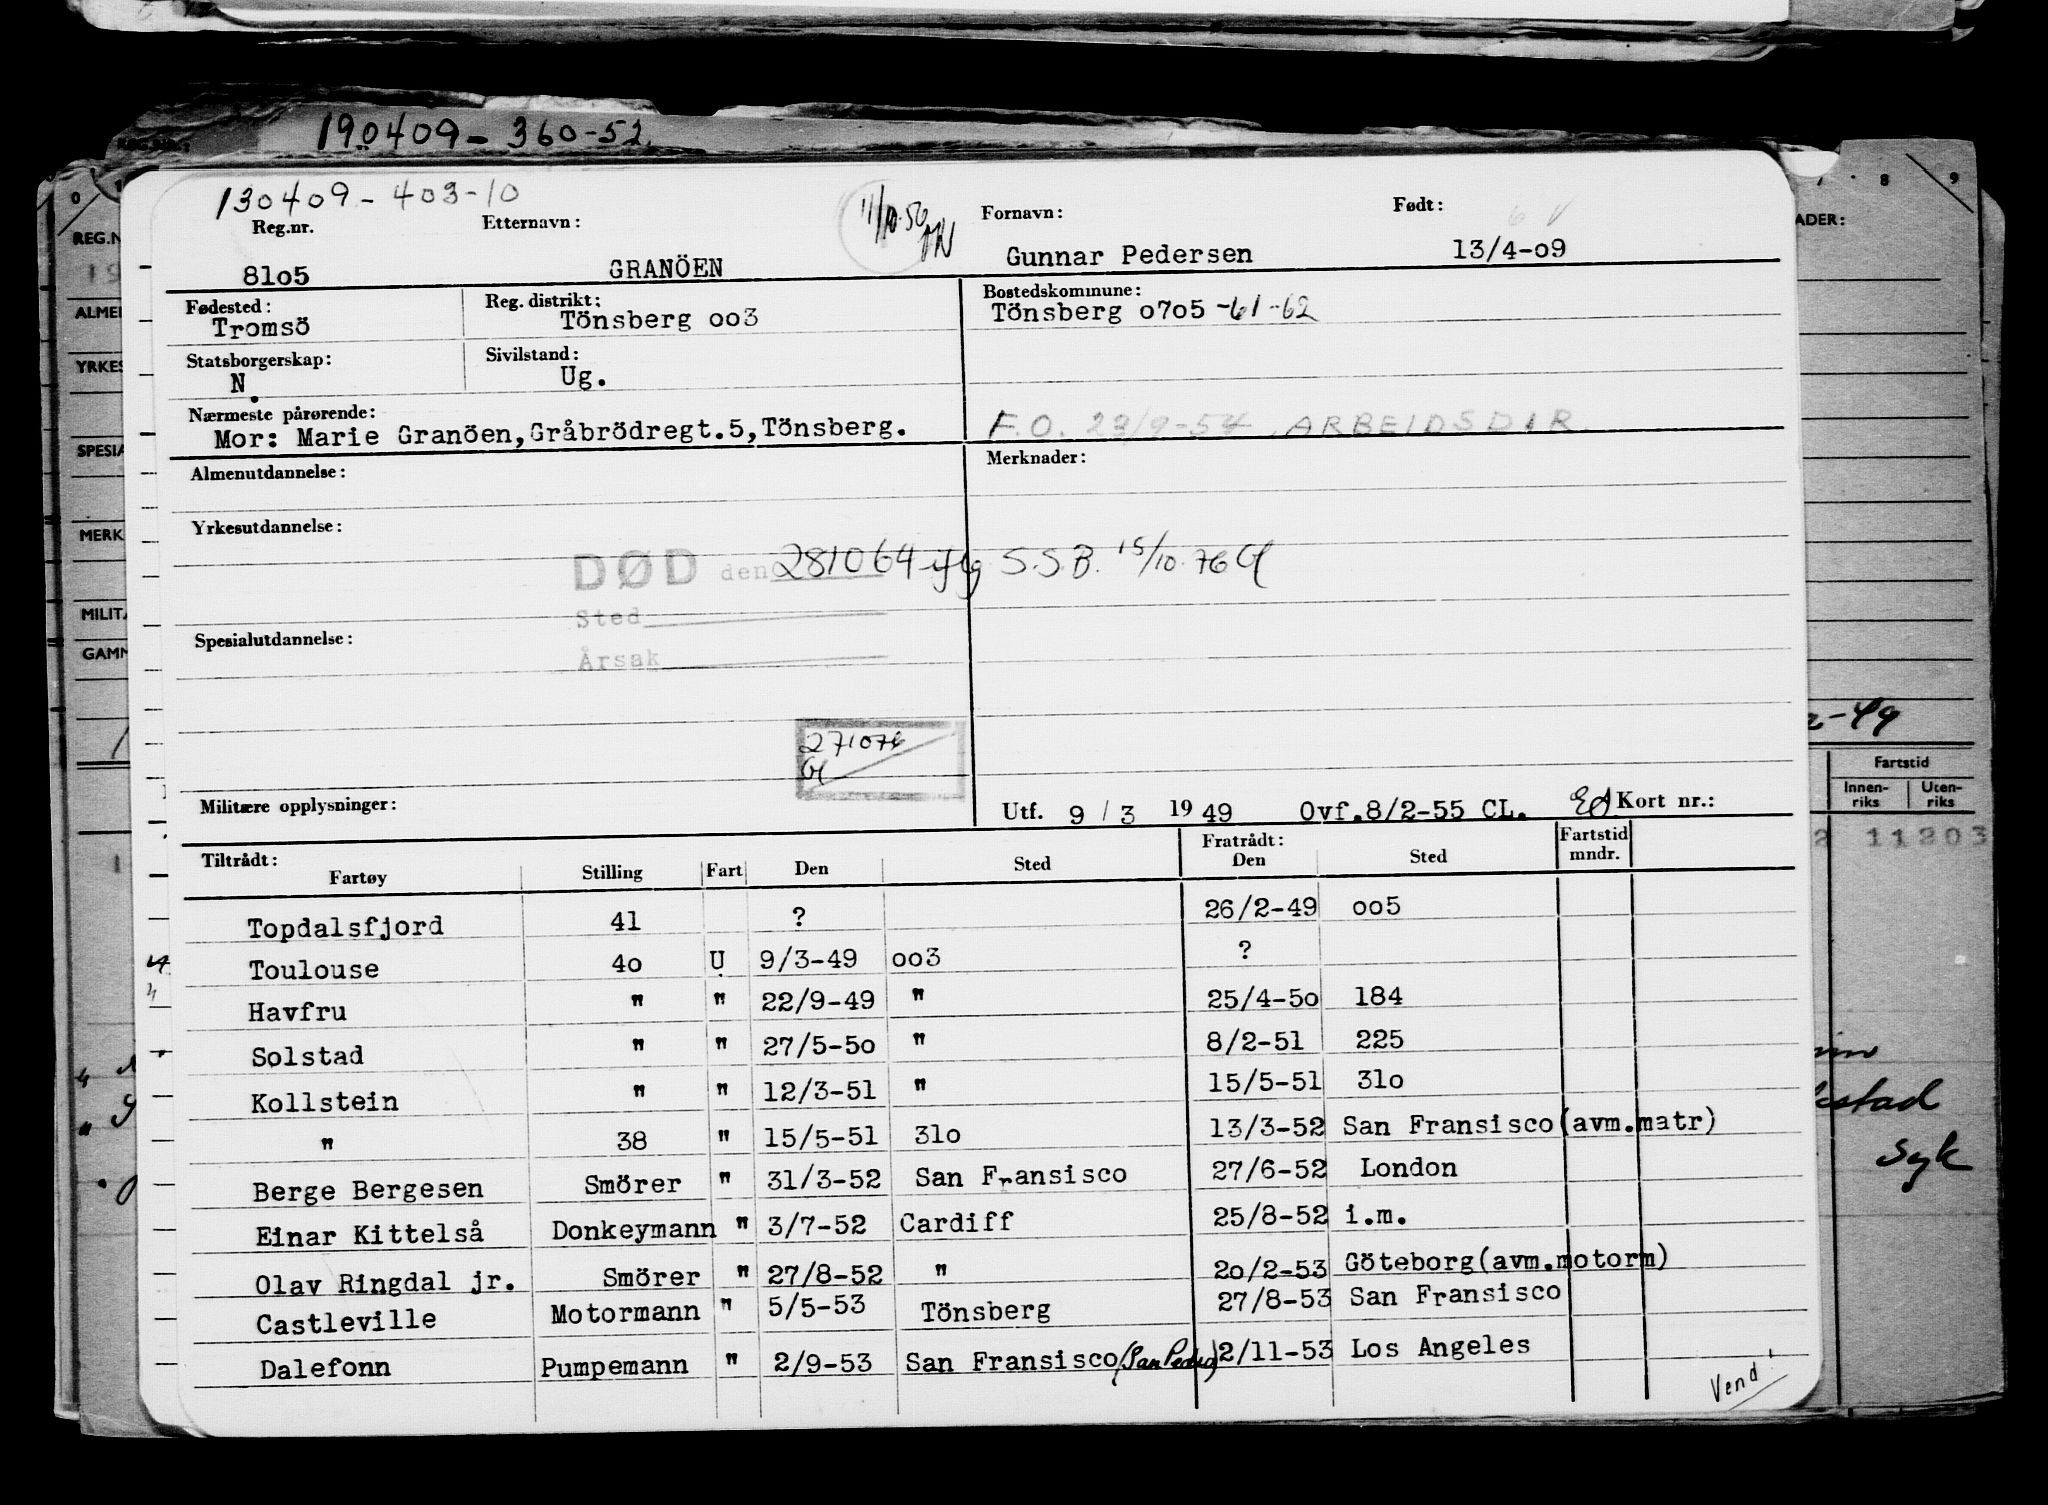 190409-360-52.
130409-403-10
Reg.nr. Etternavn: 11/10.50 Fornavn: Født:
81o5 GRANÖEN Gunnar Pedersen 13/4-o9
Fødested: Reg. distrikt: Bostedskommune:
Tromsö Tönsberg oo3 Tönsberg o7o5 -61-62
Statsborgerskap: Sivilstand:
N. Ug.
Nærmeste pårørende:
Mor: Marie Granöen,Gråbrödregt.5,Tönsberg. F.O. 23/9-54 ARBEIDSDIR.
Almenutdannelse: Merknader:
Yrkesutdannelse:
DØD den 281064 iflg S.S.B. 15/10.76 Gl
Sted
Spesialutdannelse:
Årsak
271076
Gl
Militære opplysninger: Utf. 9 / 3 19 49 Ovf.8/2-55 CL. Kort nr.:
Tiltrådt: Fratrådt: Fartstid
Fartøy Stilling Fart Den Sted Den Sted mndr.
Topdalsfjord 41 ? 26/2-49 oo5
Toulouse 4o U 9/3-49 oo3 ?
Havfru " " 22/9-49 " 25/4-5o 184
Solstad " " 27/5-5o " 8/2-51 225
Kollstein " " 12/3-51 " 15/5-51 31o
" 38 " 15/5-51 31o 13/3-52 San Fransisco(avm.matr)
Berge Bergesen Smörer " 31/3-52 San Fransisco 27/6-52 London
Einar Kittelså Donkeymann " 3/7-52 Cardiff 25/8-52 i.m.
Olav Ringdal jr. Smörer " 27/8-52 " 2o/2-53 Göteborg(avm.motorm)
Castleville Motormann " 5/5-53 Tönsberg 27/8-53 San Fransisco
Dalefonn Pumpemann " 2/9-53 San Fransisco(San Pedro) 2/11-53 Los Angeles
Vend!
0
REG.N
19
ALMEN
YRKES
SPESIA
MERK
MILITÆ
GAMM
8 9
ADER:
-49
Fartstid
Innen-
riks
Uten-
riks
2 11203
stad
syk